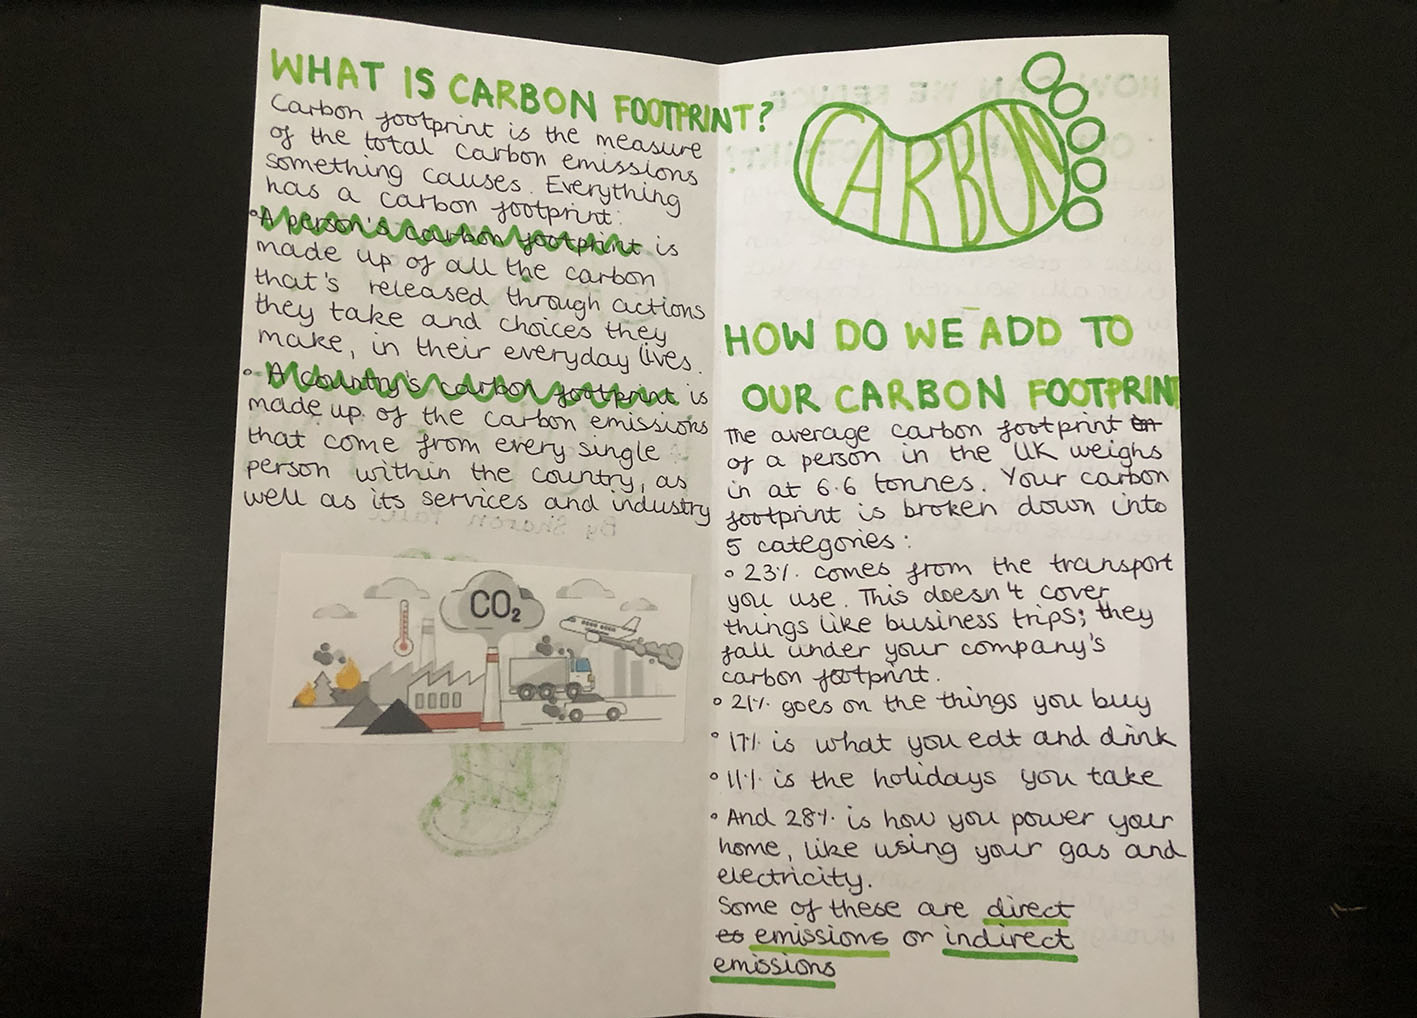 WHAT IS CARBON FOOTPRINT?
Carbon footprint is the measure
of the total carbon emissions
something causes. Everything
has a carbon footprint:
• A person's carbon footprint is
made up of all the carbon
that's released through actions
they take and choices they
make, in their everyday lives.
• A country's carbon footprint is
made up of the carbon emissions
that come from every single
person within the country, as
well as its services and industry
By Sharon
CO₂
CARBON
HOW DO WE ADD TO
OUR CARBON FOOTPRINT
The average carbon footprint
of a person in the UK weighs
in at 6.6 tonnes. Your carbon
footprint is broken down into
5 categories:
• 23% comes from the transport
you use. This doesn't cover
things like business trips; they
fall under your company's
carbon footprint.
• 21% goes on the things you buy
• 17% is what you eat and drink
• 11% is the holidays you take
• And 28% is how you power your
home, like using your gas and
electricity.
Some of these are direct
emissions or indirect
emissions